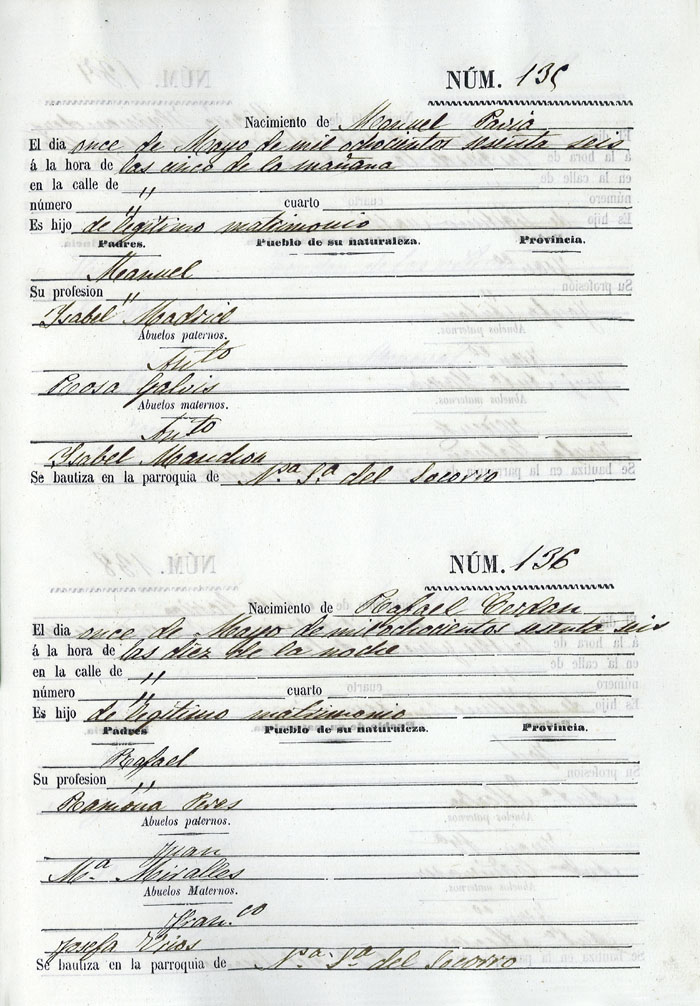 NÚM. 135
Nacimiento de Manuel Parra
El dia once de Mayo de mil ochocientos sesenta seis
á la hora de las cinco de la mañana
en la calle de "
número " cuarto
Es hijo de legítimo matrimonio
Padres. Pueblo de su naturaleza. Provincia.
Manuel
Su profesion "
Isabel Madrid
Abuelos paternos.
Anto
Rosa Galvis
Abuelos maternos.
Anto
Isabel
Se bautiza en la parroquia de Nª Sª del Socorro
NÚM. 136
Nacimiento de Rafael Cerdan
El dia once de Mayo de mil ochocientos sesenta seis
á la hora de las diez de la noche
en la calle de "
número " cuarto
Es hijo de legítimo matrimonio
Padres Pueblo de su naturaleza. Provincia.
Rafael
Su profesion "
Ramona Pires
Abuelos paternos.
Juan
Mª Miralles
Abuelos Maternos.
Fran.co
Josefa Rios
Se bautiza en la parroquia de Nª Sª del Socorro